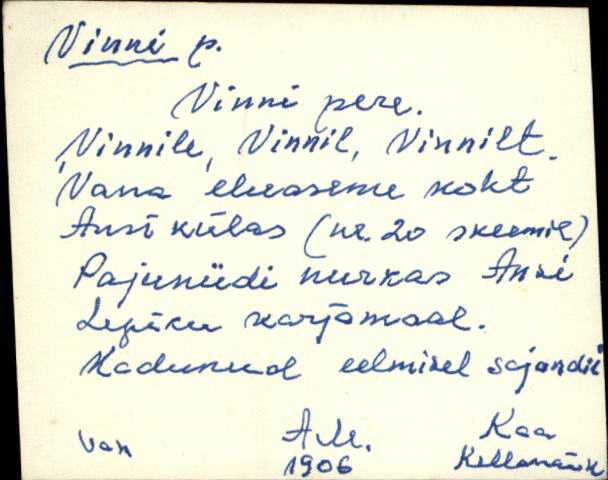 Vinni p.
Vinni pere.
Vinnile, Vinnil, Vinnilt.
Vana eluaseme koht
Ansi külas (nr. 20 skeemil)
Pajuniidi nurkas Ansi
Lepiku karjamaal.
Kadunud eelmisel sajandil
van A.M. Kaa
1906